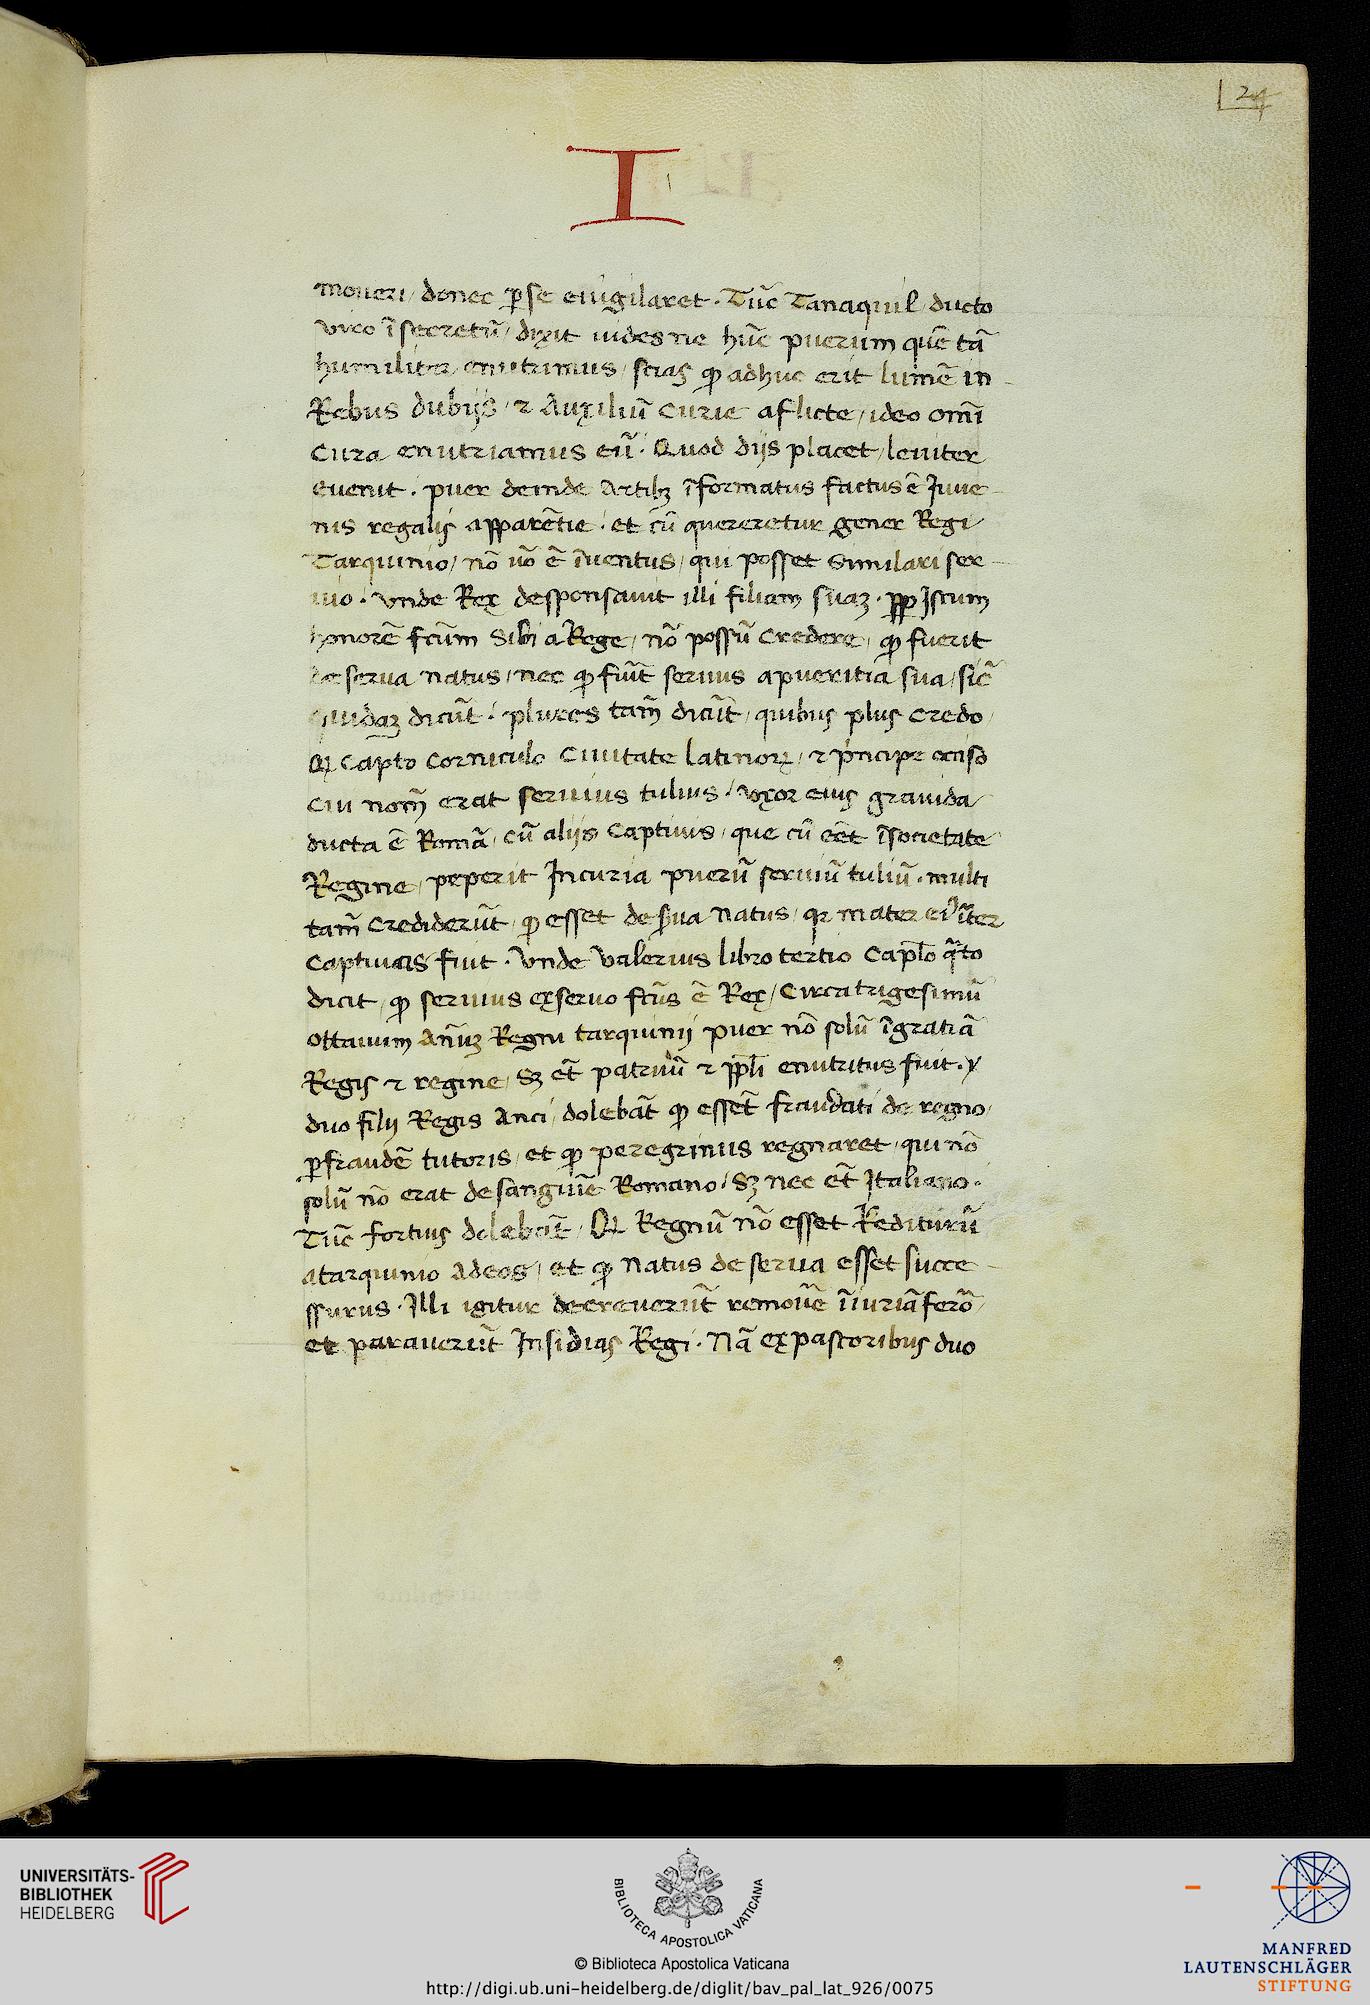 24
I
moueri / donec ꝑ se euigilaret . Tūc Tanaquil / ducto
viro ī secretū / dixit uides ne hūc puerum quē tā
humiliter enutrimus / scias ꝙ adhuc erit lumē in
Rebus dubijs / ⁊ Auxiliū Curie aflicte / ideo omī
Cura enutriamus eū . Quod dijs placet / leuiter
euenit . puer deinde Artibꝫ īformatus factus ē Juue-
nis regalis apparētie . et cū quereretur gener Regi
Tarquinio / nō uō ē īuentus / qui posset simulari ser-
uio . vnde Rex desponsauit illi filiam suaꝫ . ꝓꝑ Istum
honorē fc̄um sibi a Rege / nō possū Credere / ꝙ fuerit
de serua natus / nec ꝙ fuīt seruus a pueritia sua / sic̄
quidaꝫ dicūt . plures tam̄ dicūt / quibus plus Credo
Qꝫ Capto Corniculo Ciuitate latinoꝝ / ⁊ p̄ncipe occiso
Cui nom̄ erat seruius tulius / vxor eius grauida
ducta ē Romā / cū alijs Captiuis / que cū eēt ī societate
Regine / peperit In curia puerū seruiū tuliū . multi
tam̄ Crediderūt / ꝙ esset de s̄ua natus / qꝛ mater eiꝰ īter
Captiuas fuit . vnde valerius libro tertio Capl̄o q̄rto
dicit / ꝙ seruius ex seruo fc̄us ē Rex / Circa trigesimū
ottauum An̄uꝫ Regni tarquinij puer nō solū ī gratiā
Regis ⁊ regine / Sꝫ ēt patruū ⁊ pp̄li enutritus fuit . y
duo filij Regis Anci / dolebāt ꝙ essēt fraudati de regno /
ꝑ fraudē tutoris / et ꝙ peregrinus regnaret / qui nō
solū nō erat de sanguīe Romano / Sꝫ nec ēt Italiano .
Tūc fortius dolebāt / Qꝫ Regnū nō esset Rediturū
a tarquinio ad eos / et ꝙ natus de serua esset succe-
ssurus . Illi igitur decreuerūt remouē īiuriā ferō
et parauerūt Insidias Regi . Nā ex pastoribus duo
UNIVERSITÄTS-
BIBLIOTHEK
HEIDELBERG
BIBLIOTECA APOSTOLICA VATICANA
© Biblioteca Apostolica Vaticana
http://digi.ub.uni-heidelberg.de/diglit/bav_pal_lat_926/0075
MANFRED
LAUTENSCHLÄGER
STIFTUNG